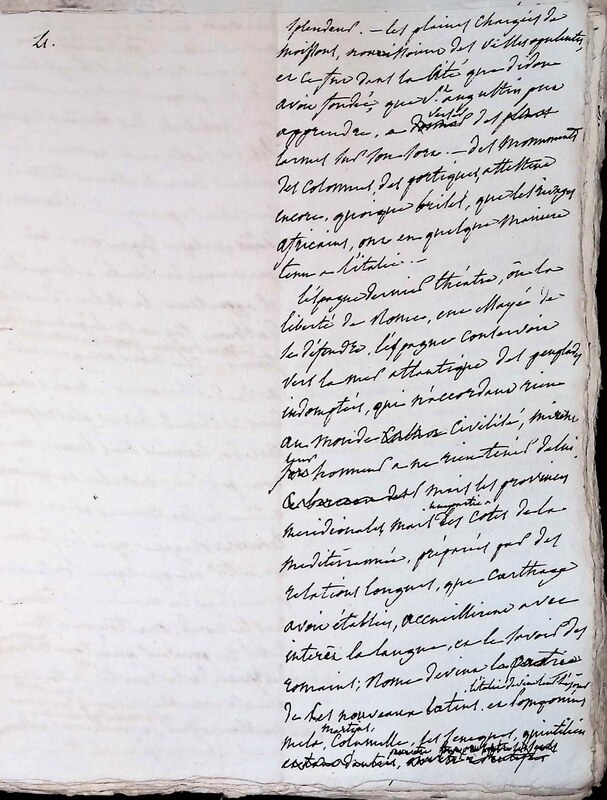 4.
splendeur. – les plaines chargées de
moissons, nourissoient des villes opulentes,
et ce fut dans la cité que didon
avoit fondée, que St augustin put
apprendre, a verser des pleurs
larmes sur son sort. – des monumens
des colonnes, des portiques, attestent
encore, quoique brisés, que les rivages
africains, ont en quelque maniere
tenu a l'italie. –
l'éspagne dernier théatre, ou la
liberté de Rome, eut essayé de
se défendre, l'espagne conservoit
vers la mer atlantique des peuplades
indomptées, qui n'accordant rien
au monde civilisé, mirent
leur honneur a ne rien tenir de lui.
mais les provinces
meridionales, mais les cotes de la
mediterrannée, préparées par des
relations longues, que Carthage
avoit établies, accueillirent avec
interêt la langue, et le savoir des
romains; Rome devint la patrie
l'italie devint le séjour
de ses nouveaux latins. et pomponius
martial,
mela, Columelle, les seneques, quintilien